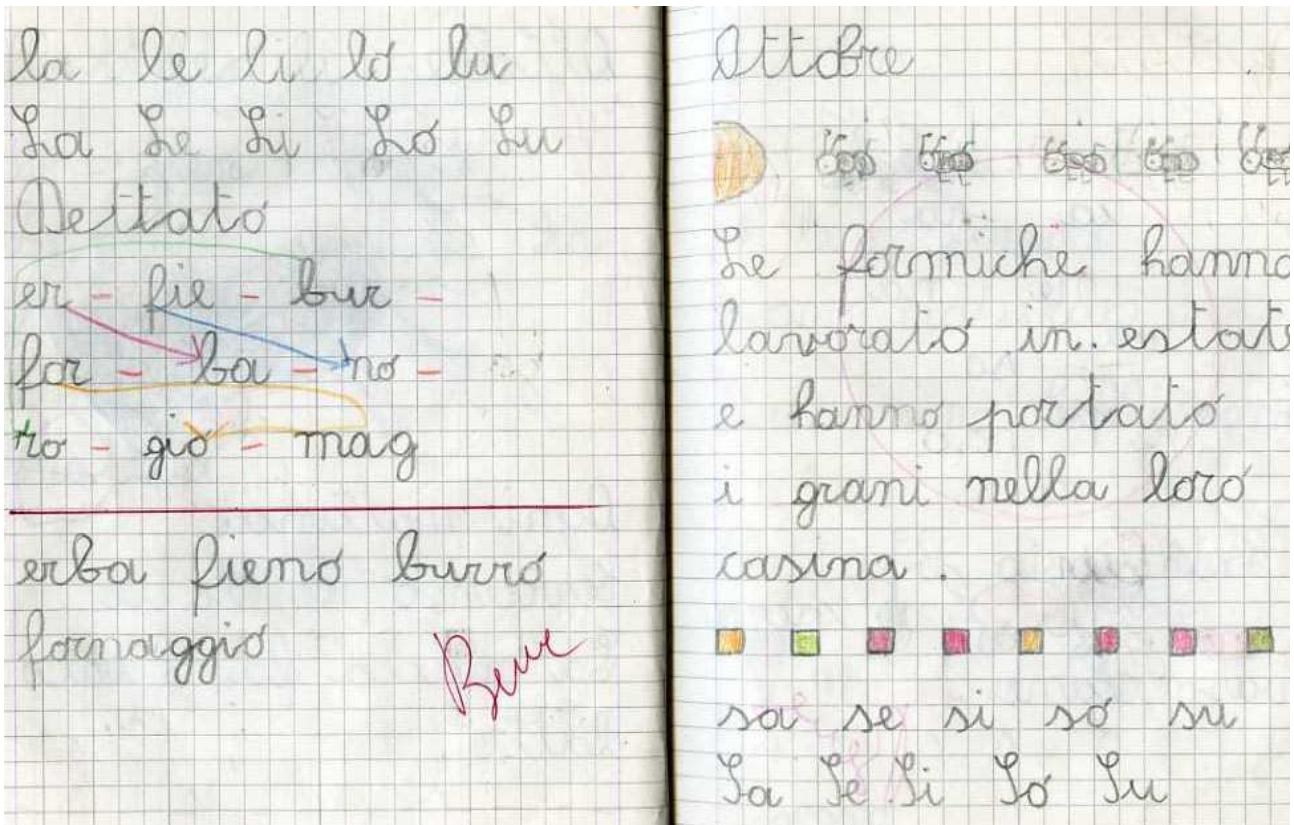 la le li lo lu
La Le Li Lo Lu
Dettato
er - fie - bur -
for - ba - no -
ro - gio - mag
erba fieno burro
fornaggio
Bene
Ottobre
Le formiche hanno
lavorato in. estate
e hanno portato
i grani nella loro
casina.
sa se si so su
Sa Se Si So Su